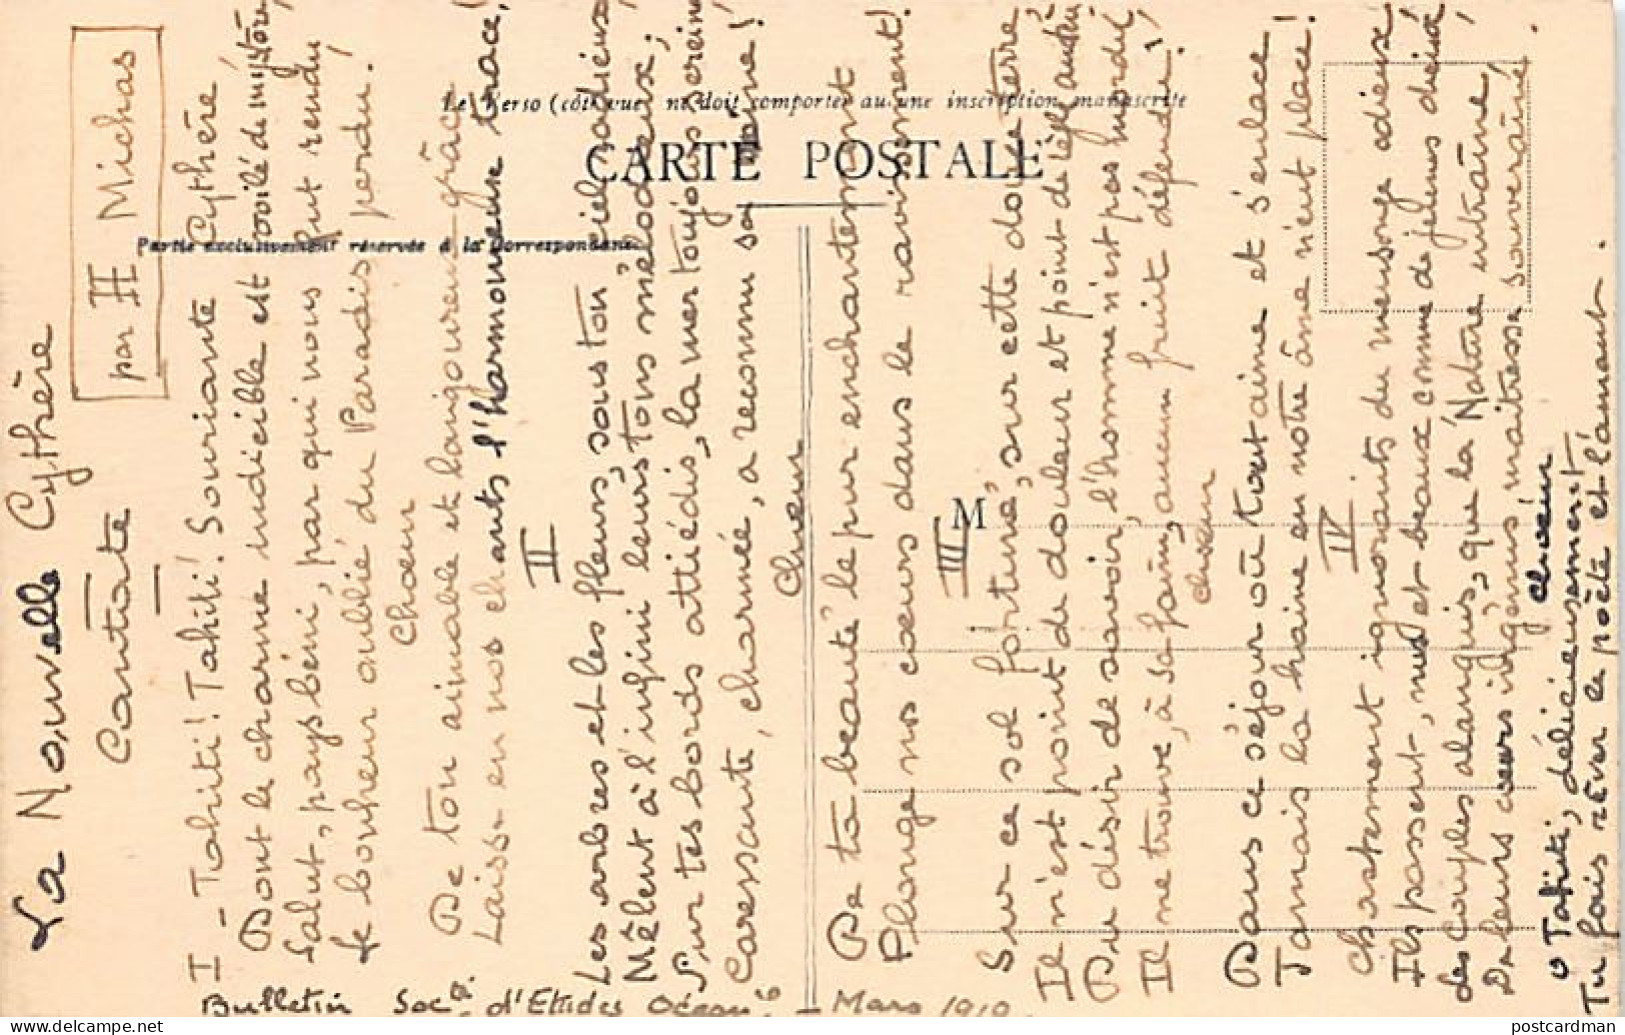 La Nouvelle Cythère
Cantate
par H Michas
I - Tahiti! Tahiti! Souriante Cythère
Dont le charme indicible est voilé de mystère,
Salut, pays béni, par qui nous fut rendu,
Le bonheur oublié du Paradis perdu!
Chœur
De ton aimable et langoureuse grâce
Laisse en nos chants l'harmonieuse trace!
II
Les arbres et les fleurs, sous ton ciel radieux,
Mêlent à l'infini leurs tons mélodieux;
Sur tes bords attiédis, la mer toujours sereine
Caressante, charmée, a reconnu sa reine!
Chœur
De ta beauté le pur enchantement
Plonge nos cœurs dans le ravissement!
III
Sur ce sol fortuné, sur cette douce terre,
Il n'est point de douleur et point de
Du désir de savoir, l'homme n'est pas mordu,
Il ne trouve, à sa faim, aucun fruit défendu!
Chœur
Dans ce séjour où tout aime et s'enlace
Jamais la haine en notre âme n'eut place!
IV
Chastement ignorants du mensonge odieux
Ils passent, nus et beaux comme de jeunes dieux,
des couples alanguis, que la Nature entraîne,
De leurs cœurs ingénus maîtresse souveraine.
Chœur
O Tahiti, délicieusement
Tu fais rêver le poète et l'amant.
Bulletin Soc. d'Etudes Océan. - Mars 1919
Le Verso (côté vue) ne doit comporter aucune inscription manuscrite
CARTE POSTALE
Partie exclusivement réservée à la Correspondance
M
postcardman